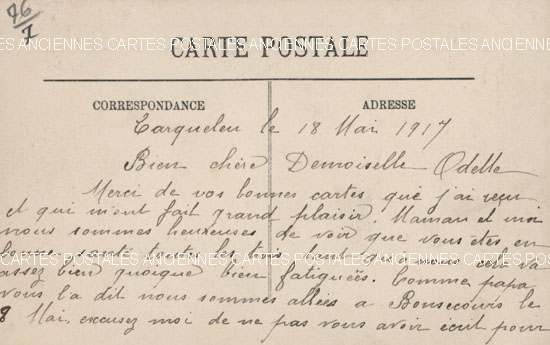 76/7
CARTES POSTALES ANCIENNES CARTES POSTALES ANCIENNES CARTES POSTALES
CARTE POSTALE
CORRESPONDANCE
ADRESSE
le 18 Mai 1917
Bien chère Demoiselle Odette
Merci de vos bonnes cartes que j'ai reçu
et qui m'ont fait grand plaisir. Maman et moi
nous sommes heureuses de voir que vous êtes en
bonne santé toutes les
assez bien quoique bien fatiguées. Comme papa
vous l'a dit nous sommes allées a Bonsecours le
8 Mai, excusez moi de ne pas vous avoir écrit pour